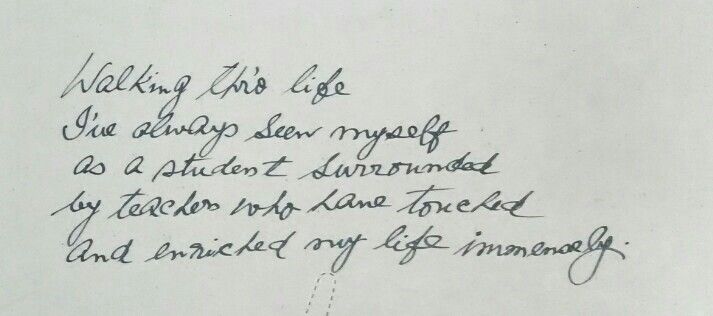 Walking thro life
I've always seen myself
as a student surrounded
by teachers who have touched
and enriched my life immensely.